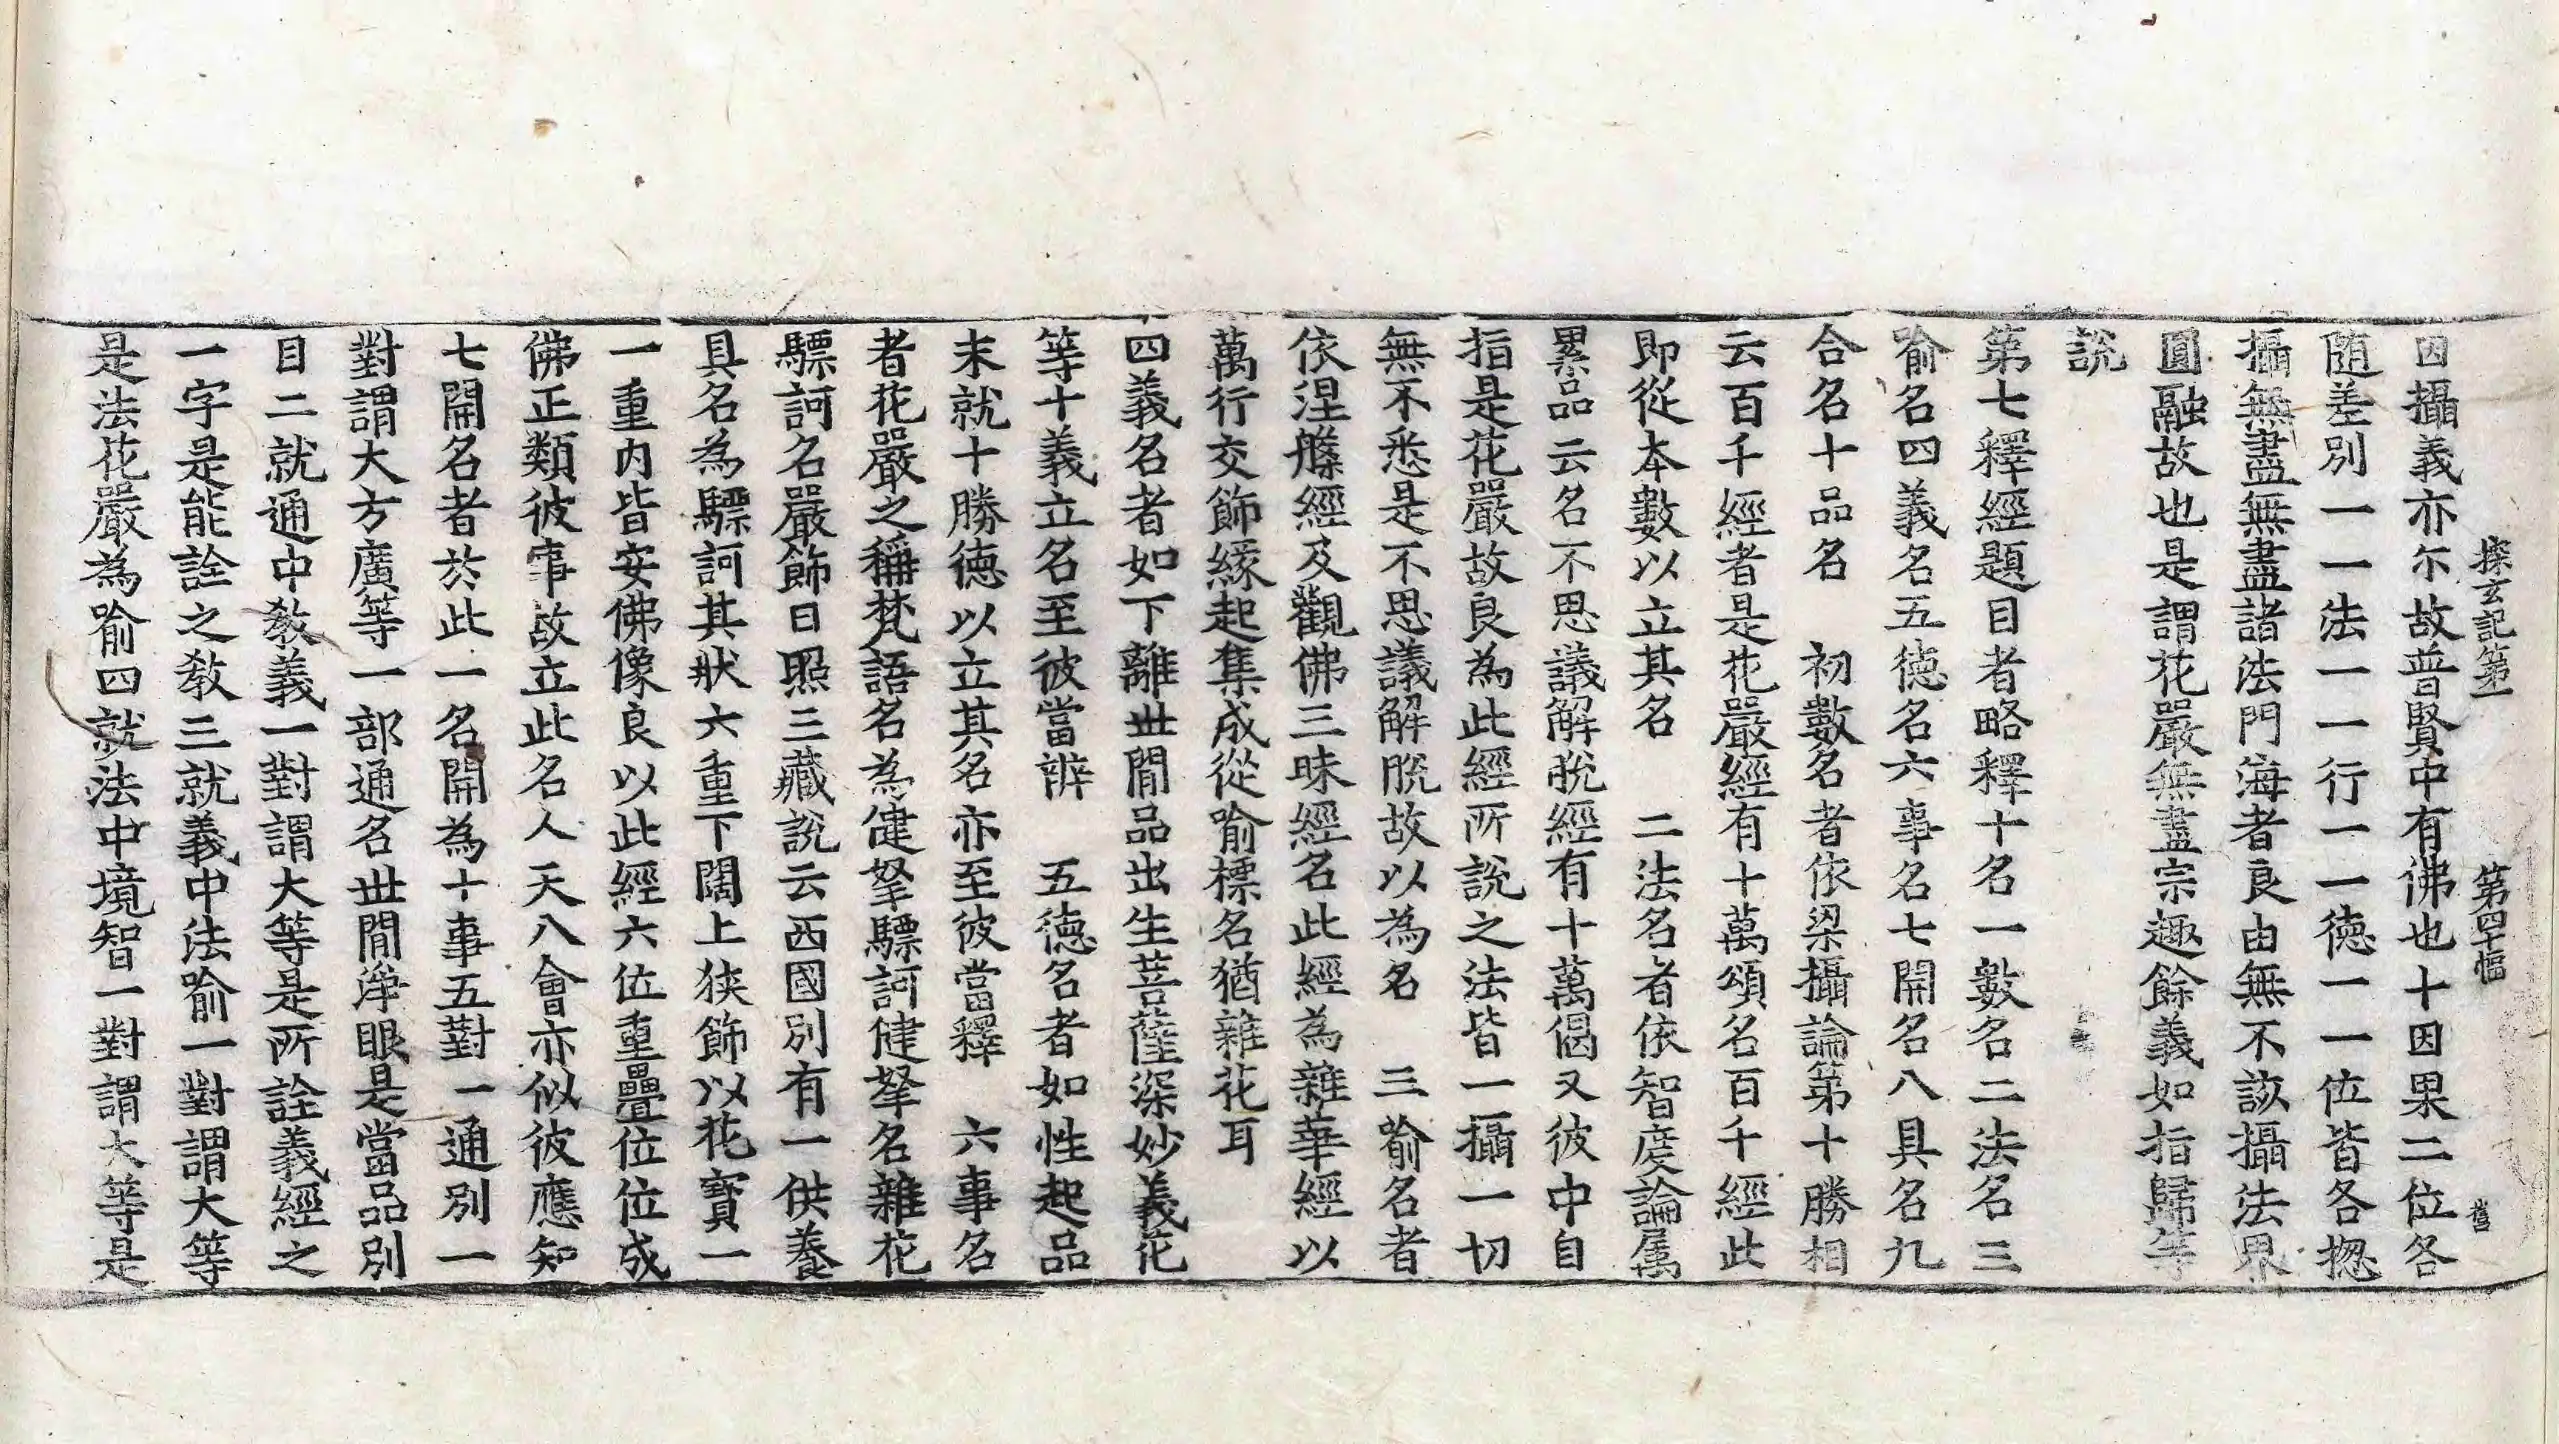 探玄記第一 第四十幅 舊
因攝義亦尓故普賢中有佛也十因果二位各
随差別一一法一一行一一德一一位皆各揔
攝無盡無盡諸法門海者良由無不該攝法界
圓融故也是謂花嚴無盡宗趣餘義如指歸等
說
第七釋經題目者略釋十名一數名二法名三
喻名四義名五德名六事名七開名八具名九
合名十品名 初數名者依梁攝論第十勝相
云百千經者是花嚴經有十萬頌名百千經此
即從本數以立其名 二法名者依智度論属
累品云名不思議解脫經有十萬偈又彼中自
指是花嚴故良為此經所說之法皆一攝一切
無不悉是不思議解脫故以為名 三喻名者
依涅槃經及觀佛三昧經名此經為雜華經以
萬行交飾緣起集成從喻標名猶雜花耳
四義名者如下離世間品出生菩薩深妙義花
等十義立名至彼當辨 五德名者如性起品
末就十勝德以立其名亦至彼當釋 六事名
者花嚴之稱梵語名為健拏驃訶健拏名雜花
驃訶名嚴飾日照三藏說云西國別有一供養
具名為驃訶其狀六重下闊上狹飾以花寶一
一重內皆安佛像良以此經六位重疊位位成
佛正類彼事故立此名人天八會亦似彼應知
七開名者於此一名開為十事五對一通別一
對謂大方廣等一部通名世間淨眼是當品別
目二就通中教義一對謂大等是所詮義經之
一字是能詮之教三就義中法喻一對謂大等
是法花嚴為喻四就法中境智一對謂大等是